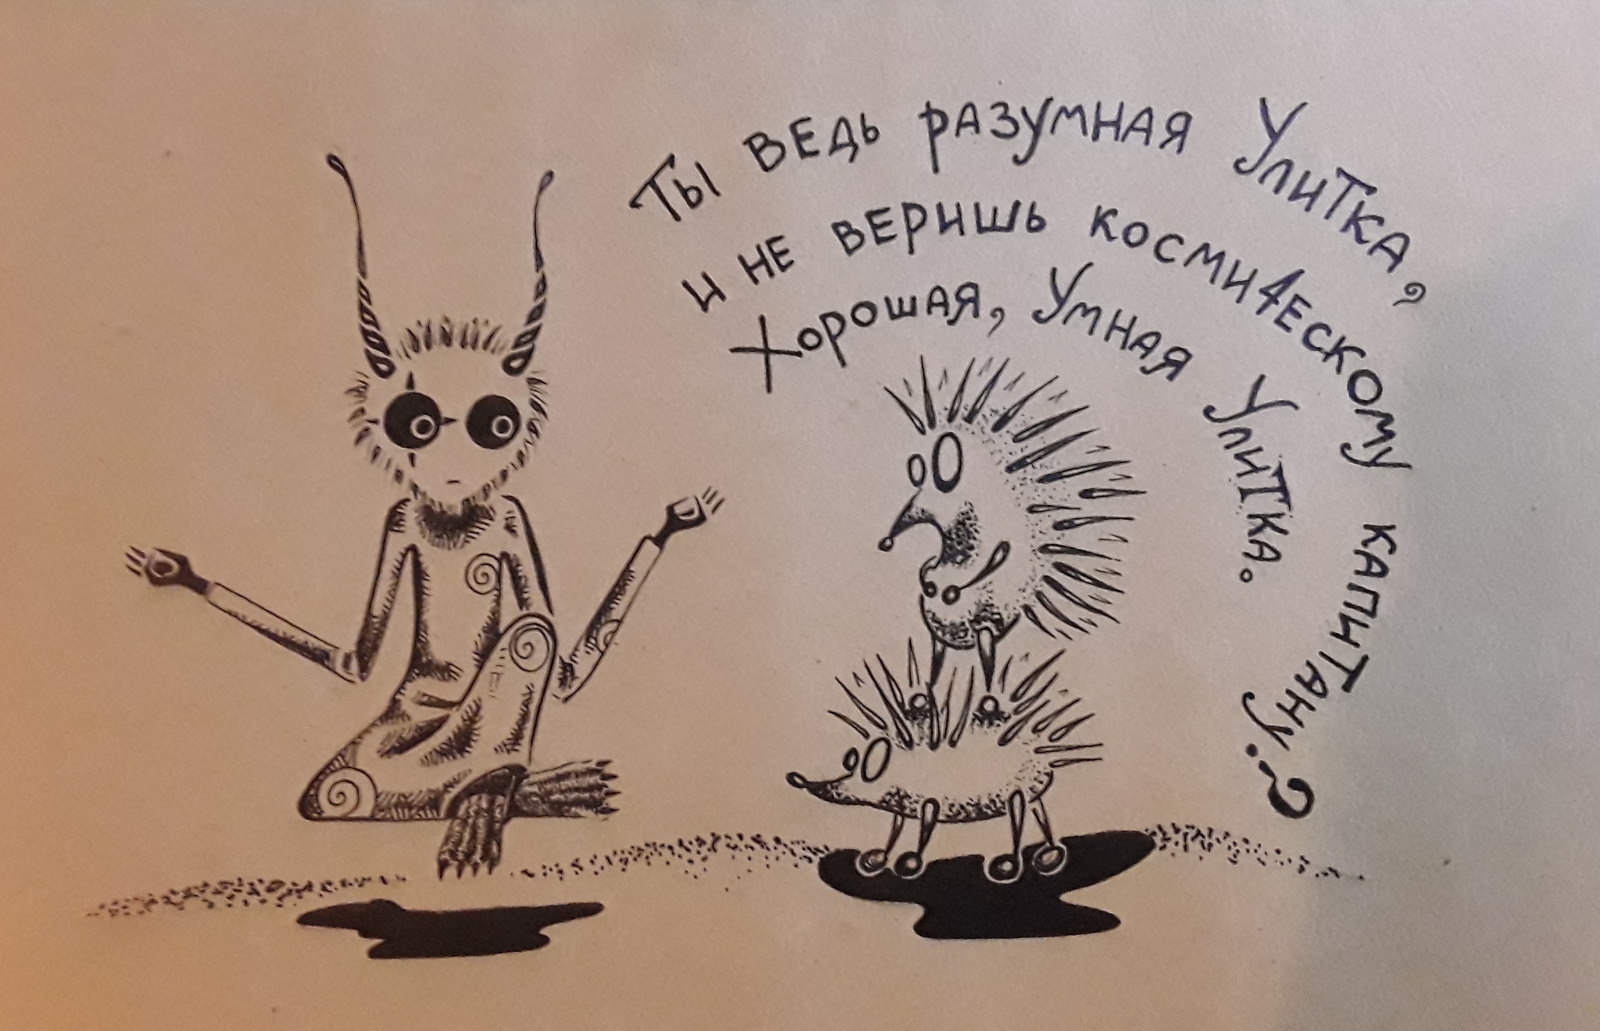 Ты ведь разумная Улитка,
и не веришь косми4ескому капитану?
Хорошая, Умная Улитка.